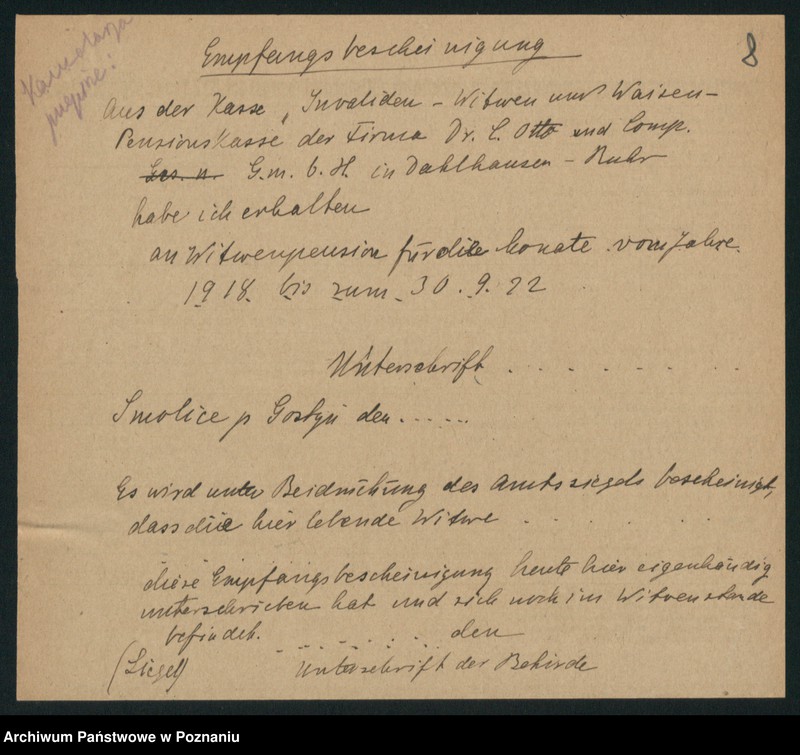 8
Empfangsbescheinigung
Aus der Kasse „Invaliden - Witwen und Waisen-
Pensionskasse der Firma Dr. C. Otto und Comp.
G.m.b.H. in Dahlhausen - Ruhr
habe ich erhalten
an Witwenpension für die Monate vom Jahre
1918 bis zum 30.9.22
Unterschrift . . . . . . . . .
Smolice p Gostyń den . . . . . .
Es wird unter Beidrückung des Amtssiegels bescheinigt,
dass die hier lebende Witwe . . . . . .
diese Empfangsbescheinigung heute hier eigenhändig
unterschrieben hat und sich noch im Witwenstande
befindet. . . . . . . . . den
(Siegel) Unterschrift der Behörde
Archiwum Państwowe w Poznaniu